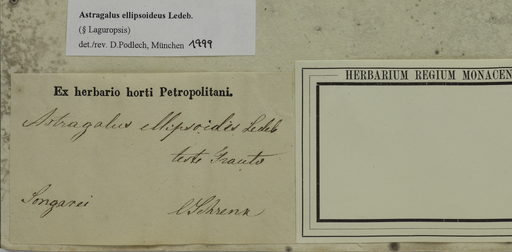 Astragalus ellipsoideus Ledeb.
(§ Laguropsis)
det./rev. D.Podlech, München 1999
HERBARIUM REGIUM MONACEN
Ex herbario horti Petropolitani.
Astragalus ellipsoides Ledeb
teste
Songarei
Schrenk